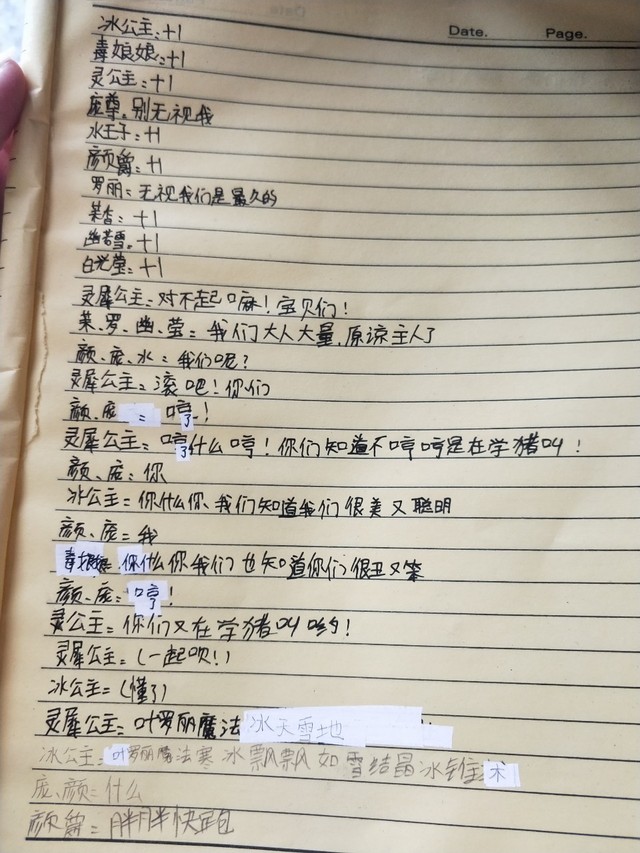 Date. Page.
冰公主:+1
毒娘娘:+1
灵公主:+1
庞尊:别无视我
水王子:+1
颜爵:+1
罗丽:无视我们是最久的
茉香:+1
幽若雪:+1
白光莹:+1
灵犀公主:对不起口麻!宝贝们!
茉、罗、幽、莹:我们大人大量,原谅主人了
颜、庞、水:我们呢?
灵犀公主:滚吧!你们
颜、庞:哼!
灵犀公主:哼什么哼!你们知道不哼哼是在学猪叫!
颜、庞:你
冰公主:你什么你、我们知道我们很美又聪明
颜、庞:我
毒娘娘:你什么你我们也知道你们很丑又笨
颜、庞:哼!
灵公主:你们又在学猪叫哟!
灵犀公主:(一起吹!)
冰公主:(懂了)
灵犀公主:叶罗丽魔法冰天雪地
冰公主:叶罗丽魔法寒冰飘飘如雪结晶冰锥术
庞、颜:什么
颜爵:胖胖快定包